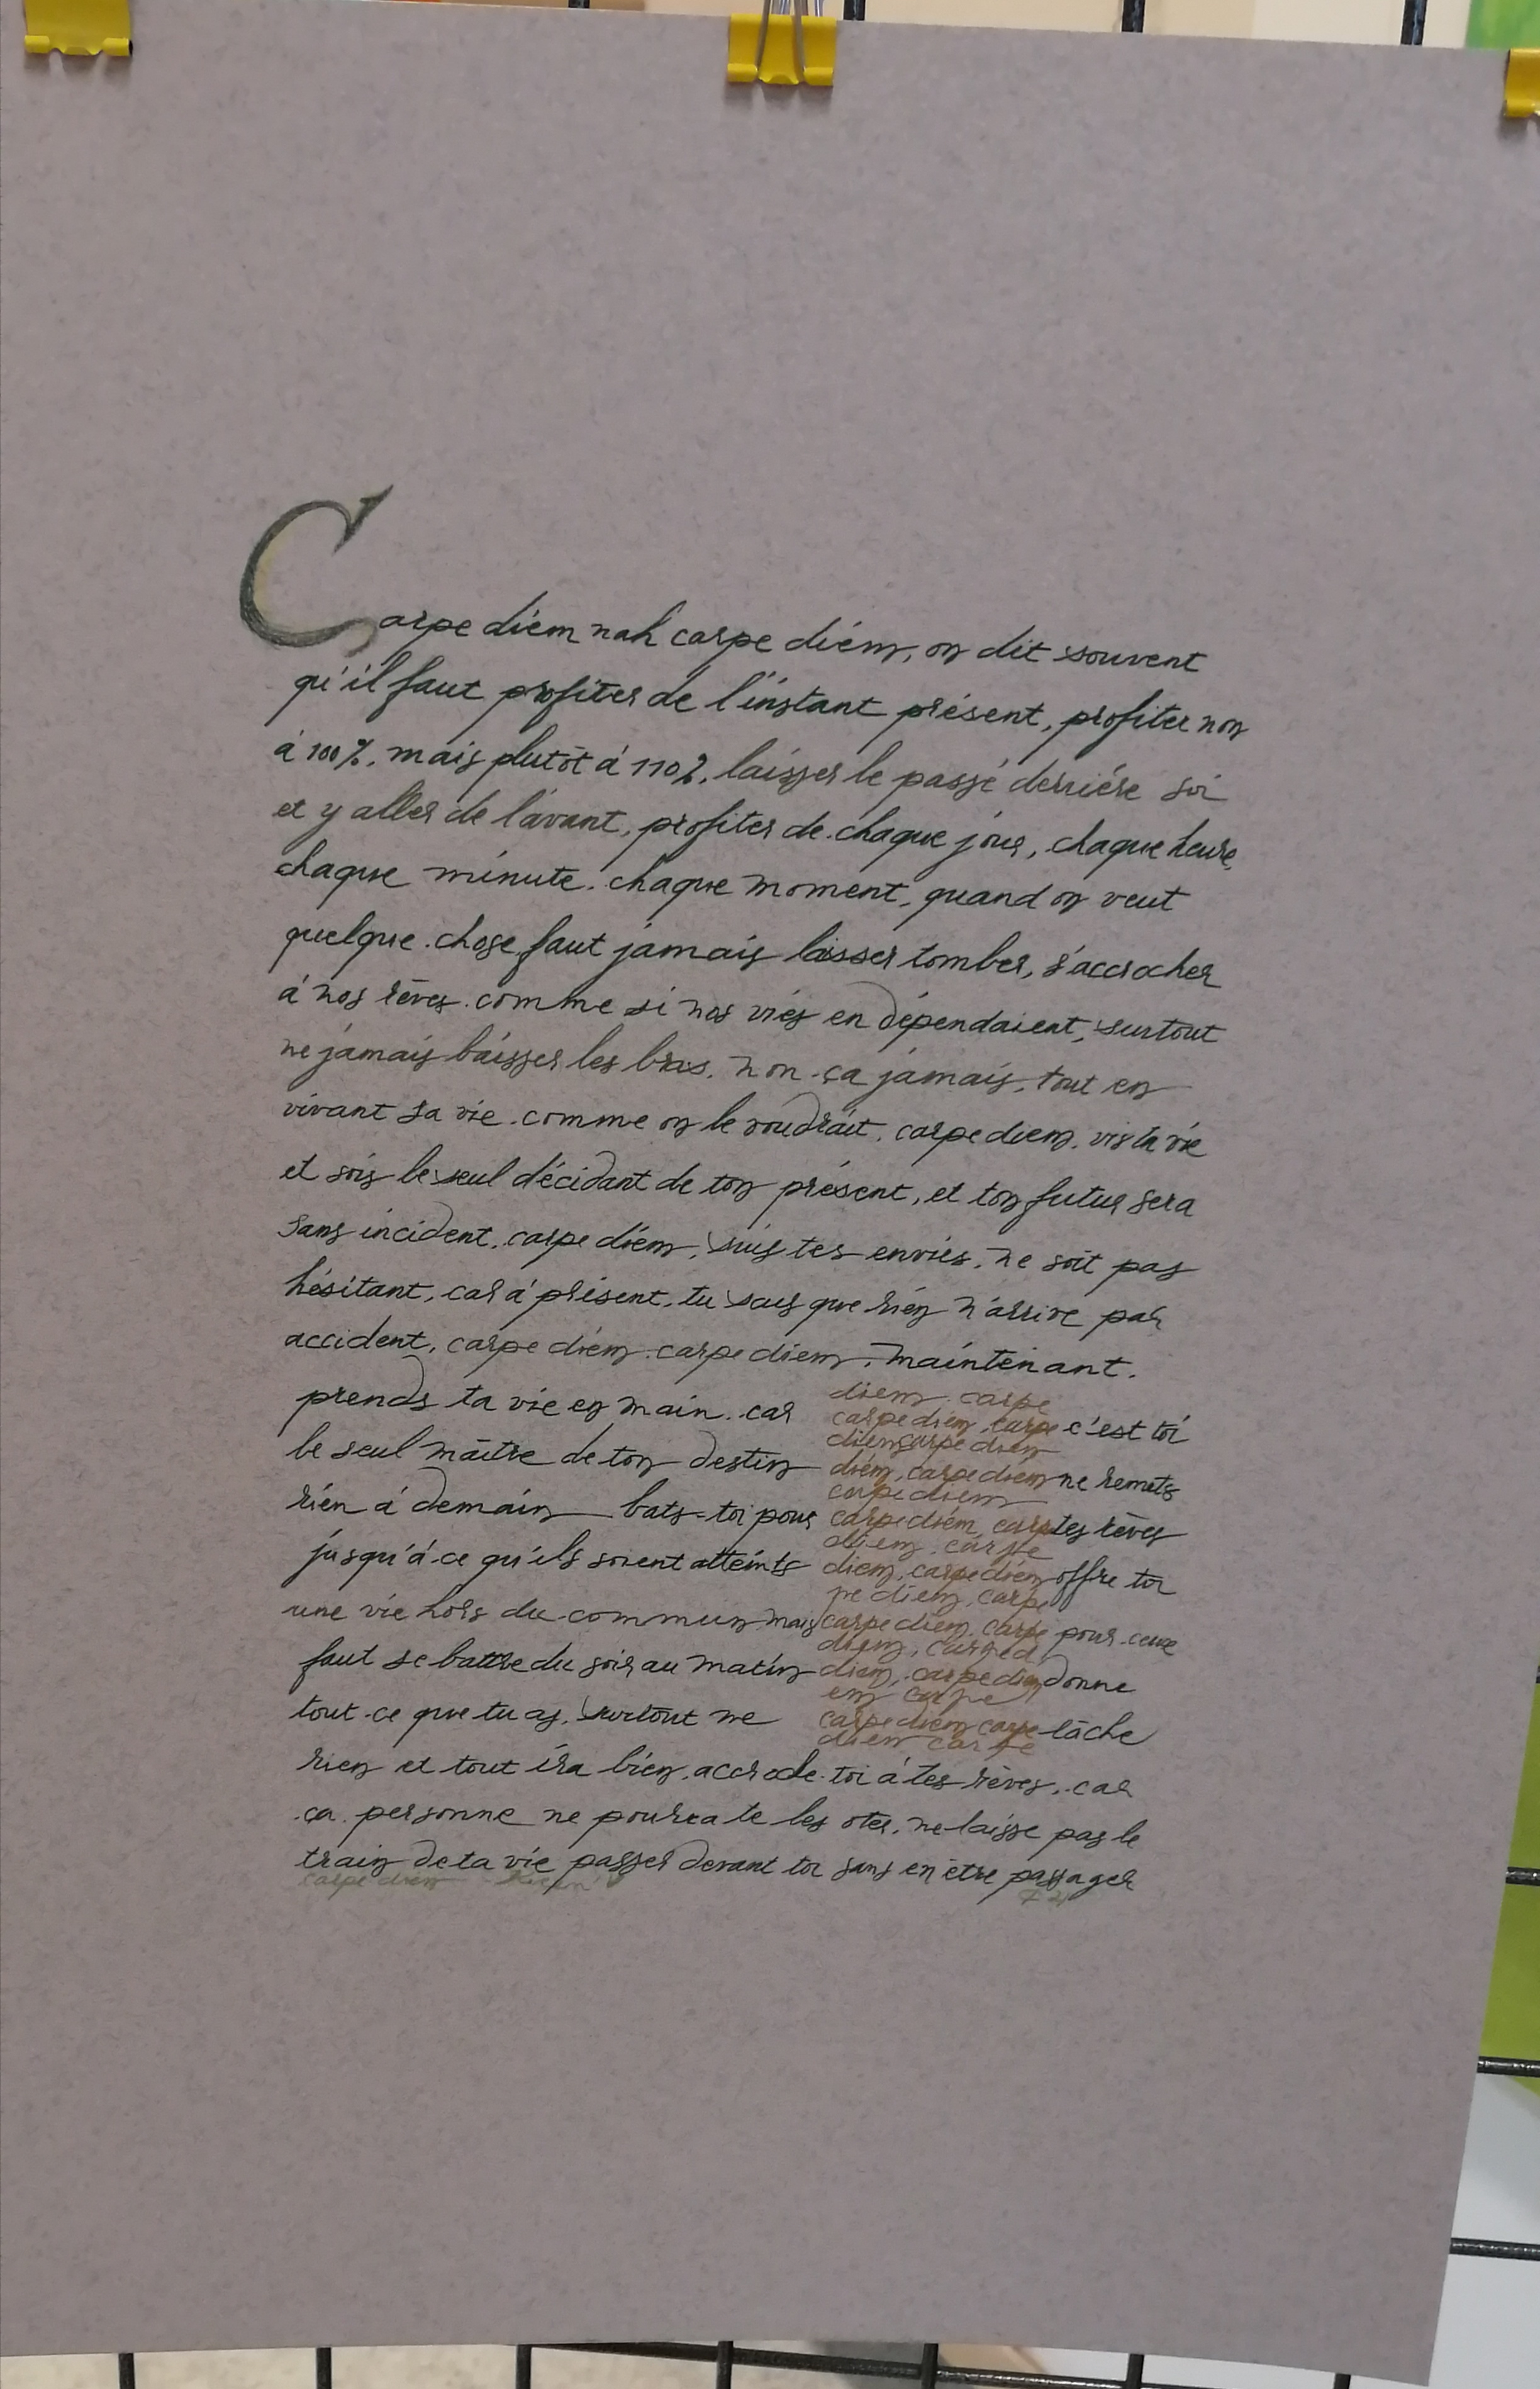 Carpe diem nah carpe diem, on dit souvent
qu'il faut profiter de l'instant présent, profiter non
à 100%, mais plutôt à 110%, laisser le passé derrière soi
et y aller de l'avant, profiter de chaque jour, chaque heure,
chaque minute, chaque moment, quand on veut
quelque chose, faut jamais laisser tomber, s'accrocher
à nos rêves comme si nos vies en dépendaient, surtout
ne jamais baisser les bras, non ça jamais, tout en
vivant sa vie comme on le voudrait, carpe diem, vis ta vie
et sois le seul décidant de ton présent, et ton futur sera
sans incident, carpe diem, suis tes envies, ne soit pas
hésitant, car à présent, tu sais que rien n'arrive par
accident, carpe diem carpe diem, maintenant,
diem carpe
prends ta vie en main, car carpe diem, carpe c'est toi
diem carpe diem
le seul maître de ton destin diem, carpe diem ne remets
carpe diem
rien à demain bats-toi pour carpe diem, carpe tes rêves
diem, carpe
jusqu'à ce qu'ils soient atteints diem, carpe diem offre toi
pe diem, carpe
une vie hors du commun, mais carpe diem, carpe pour ceux
diem, carped
faut se battre du soir au matin diem, carpe diem donne
em carpe
tout ce que tu as, surtout ne carpe diem carpe lâche
diem carpe
rien et tout ira bien, accroche-toi à tes rêves, car
ça personne ne pourra te les oter, ne laisse pas le
train de ta vie passer devant toi sans en être passager
carpe diem